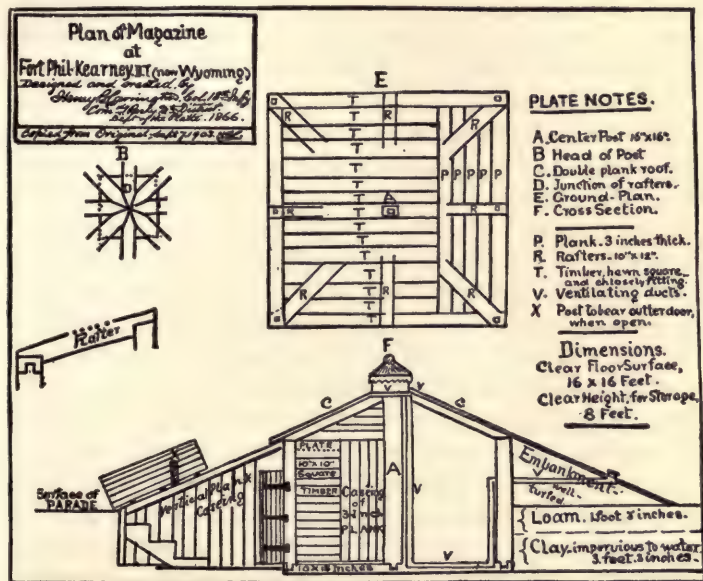 Plan of Magazine
at
Fort Phil-Kearney, D.T. (now Wyoming)
Designed and erected by
Henry B. Carrington, Col. 18th Inf.
Com'd'g Rocky Mt. District.
Dept. of the Platte. 1866.
Copied from Original, Sept. 1902.
B
D
Rafter
E
T
T
T
T
T
T
T
T
T
R
R
R
R
R
R
R
R
P
P
P
P
A
PLATE NOTES.
A. Center Post 16"x16".
B Head of Post
C. Double plank roof.
D. Junction of rafters.
E. Ground-Plan.
F. Cross Section.
P. Plank. 3 inches thick.
R. Rafters. 10"x12".
T. Timber, hewn square
and closely fitting.
V. Ventilating ducts.
X Post to bear outter door,
when open.
Dimensions.
Clear Floor Surface,
16 x 16 Feet.
Clear Height, for Storage,
8 Feet.
F
C
V
V
C
Surface of
PARADE
X
Vertical Plank
Casing
PLATE
10"x10"
Square
TIMBER
Casing
of
3 inch
PLANK
10x12 inches
A
V
V
V
Embankment.
well
turfed.
Loam. 1 foot 3 inches.
Clay-impervious to water
3 feet. 3 inches.